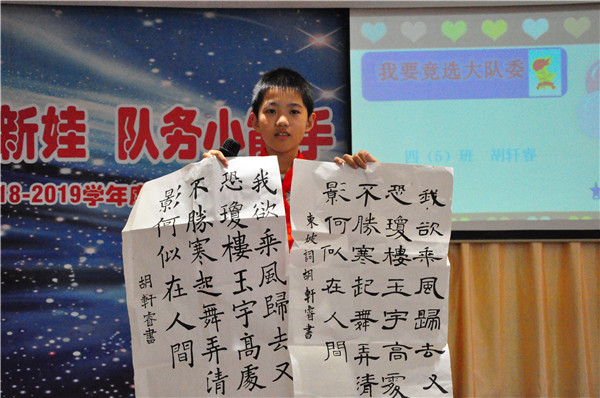 新娃 队务小能手
18-2019学年
我要竞选大队委
四（5）班 胡轩睿
我欲乘風歸去又
恐瓊樓玉宇髙處
不勝寒起舞弄清
影何似在人間
胡軒睿書
我欲乘風歸去又
恐瓊樓玉宇高處
不勝寒起舞弄清
影何似在人間
東坡詞胡軒睿書